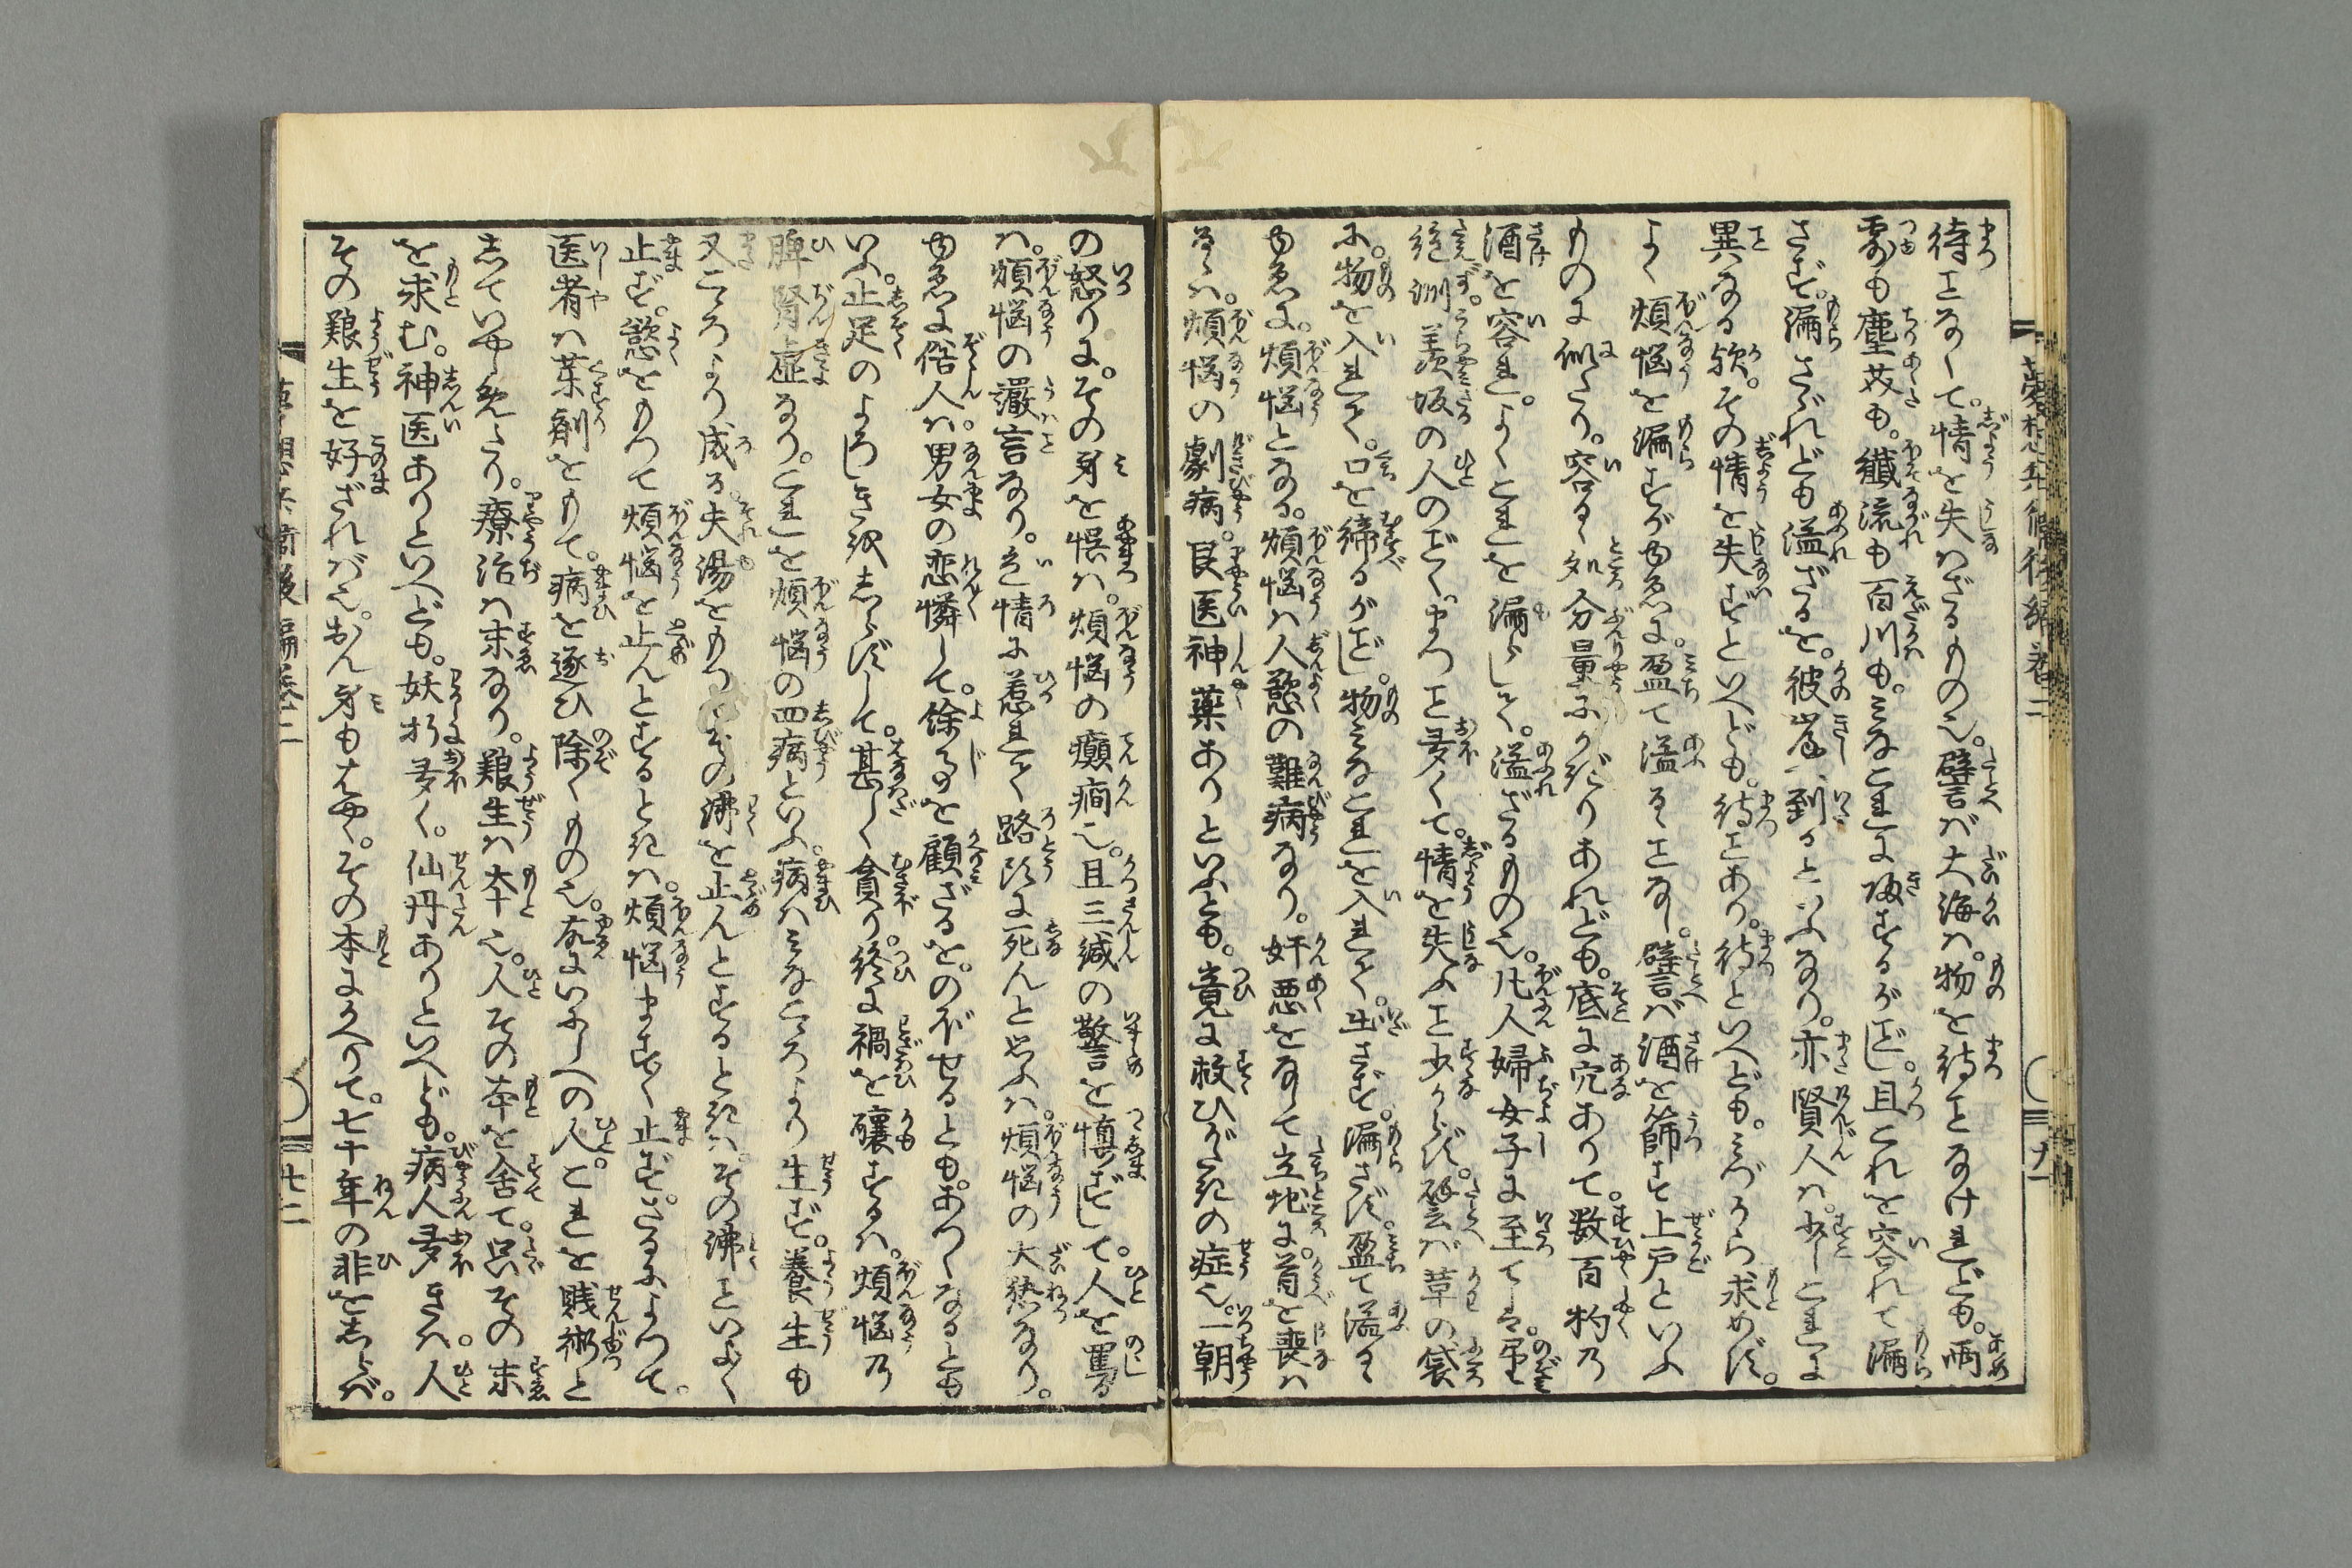 待ことなくて。情を失はざるもの也。譬ば大海は。物を待ことなけれども。雨
露も塵芥も。纎流も百川も。みなこれに歸するがごとし。且これを容れて漏
さず。漏さゞれども溢ざるを。彼岸へ到るといふなり。亦賢人は。少しこれに
異なる歟。その情を失ずといへども。待ことあり。待といへども。みづから求めず。
よく煩悩を漏すがゆゑに。盈て溢るゝことなし。譬ば酒を篩す上戸といふ
ものに似たり。容るゝ処分量にかぎりあれども。底に穴ありて。数百杓の
酒を容れ。よくこれを漏らして。溢ざるもの也。凡人婦女子に至ては。
絶淵羨坂の人のごとく。まつこと多くて。情を失ふこと少からず。譬ば草の袋
に。物を入れて。口を締るがごとし。物みなこれを入れて。出さず。漏さず。盈て溢るゝ
ゆゑに。煩悩となる。煩悩は人慾の難病なり。奸悪をなして立地に。首を喪は
るゝは。煩悩の劇病。良医神薬ありといふとも。竟に救ひがたきの症也。一朝
の怒りに。その身を悞は。煩悩の癲癇也。且三緘の警を慎ずして。人を罵る
は。煩悩の譫言なり。色情に惹れて路頭に死んと思ふは。煩悩の大熱なり。
ゆゑに俗人は。男女の恋憐して。餘事を顧ざるを。のぼせるとも。あつくなるとも
いふ。止足のよろしきをしらずして。甚しく貪り。終に禍を釀するは。煩悩の
脾腎虚なり。これを煩悩の四病といふ。病はみなこゝろより生ず。養生も
又こゝろより成る。夫湯をもつてその沸を止んとするときは。その沸こといよく
止ず。慾をもつて煩悩を止んとするときは。煩悩ますく止ず。さるによつて。
医者は薬剤をもて。病を逐ひ除くもの也。故にいにしへの人。これを賎術と
していやしめたり。療治は末なり。養生は本也。人その本を舍て。只その末
を求む。神医ありといへども。妖抂多く。仙丹ありといへども。病人多きは。人
その養生を好ざれば也。おん身もはやく。その本にかへりて。七十年の非をしらば。